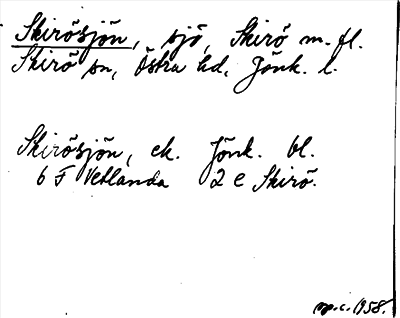 Skirösjön, sjö, Skirö m. fl.
Skirö sn, Östra hd, Jönk. l.
Skirösjön, ek. Jönk. bl.
6 F Vetlanda 2 e Skirö.
op.c. 1958.